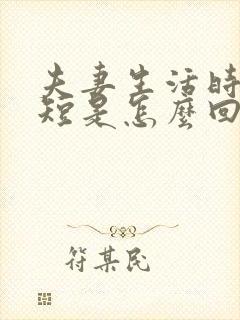 夫妻生活時
短是怎麼回
符某民